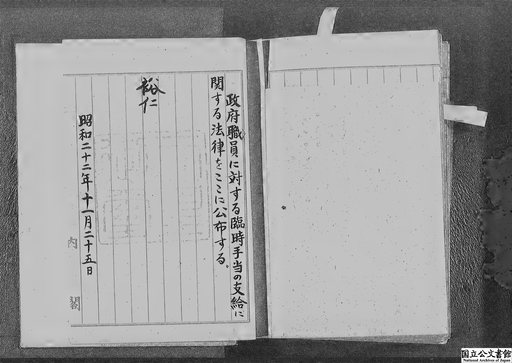 政府職員に対する臨時手当の支給に
関する法律をここに公布する。
裕仁
昭和二十二年十一月二十五日
内閣
国立公文書館
National Archives of Japan